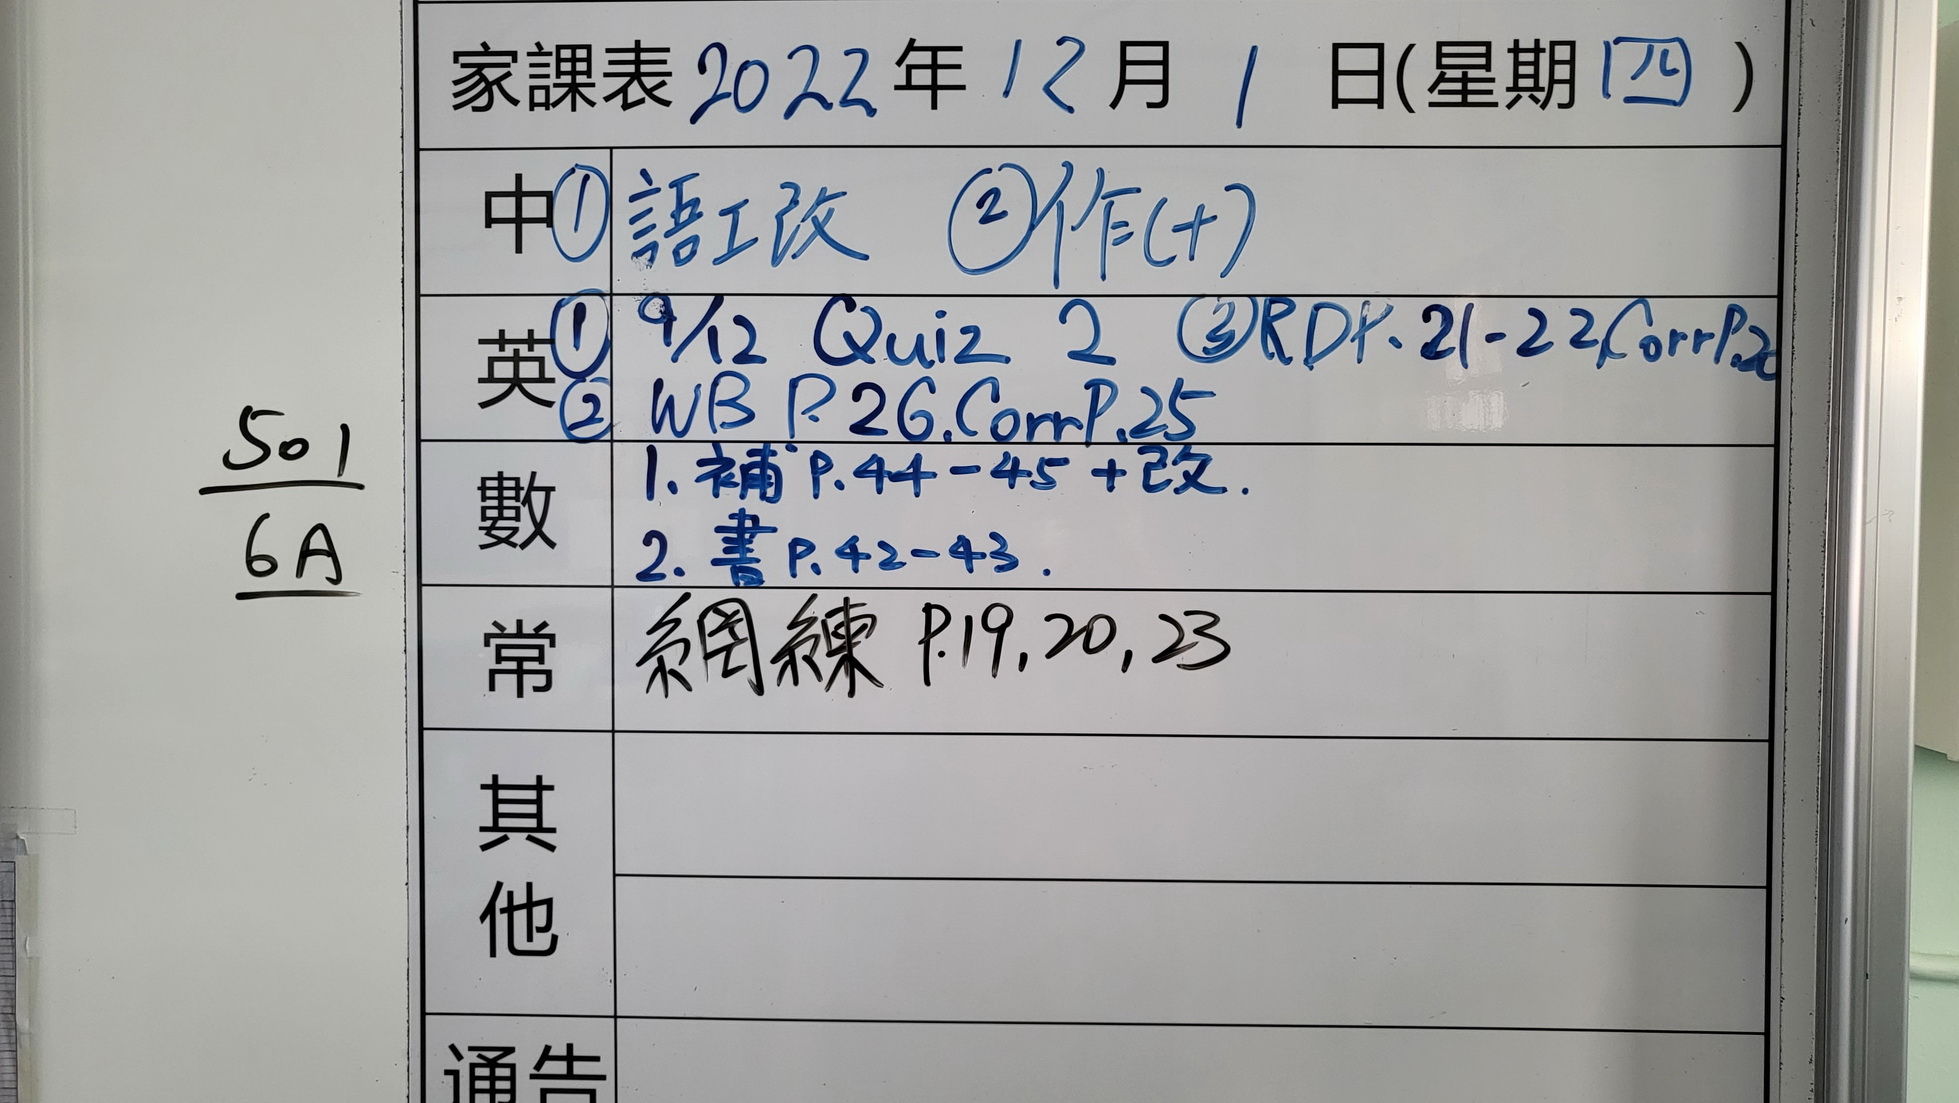 家課表 2022年 12月 1 日(星期四)
中 ① 語工改 ② 作(十)
英 ① 9/12 Quiz 2 ③ RD P.21-22, Corr P.20
② WB P.26, Corr P.25
數 1. 補 P.44-45 + 改.
2. 書 P.42-43.
常 網練 P.19, 20, 23
其他
通告
501
6A